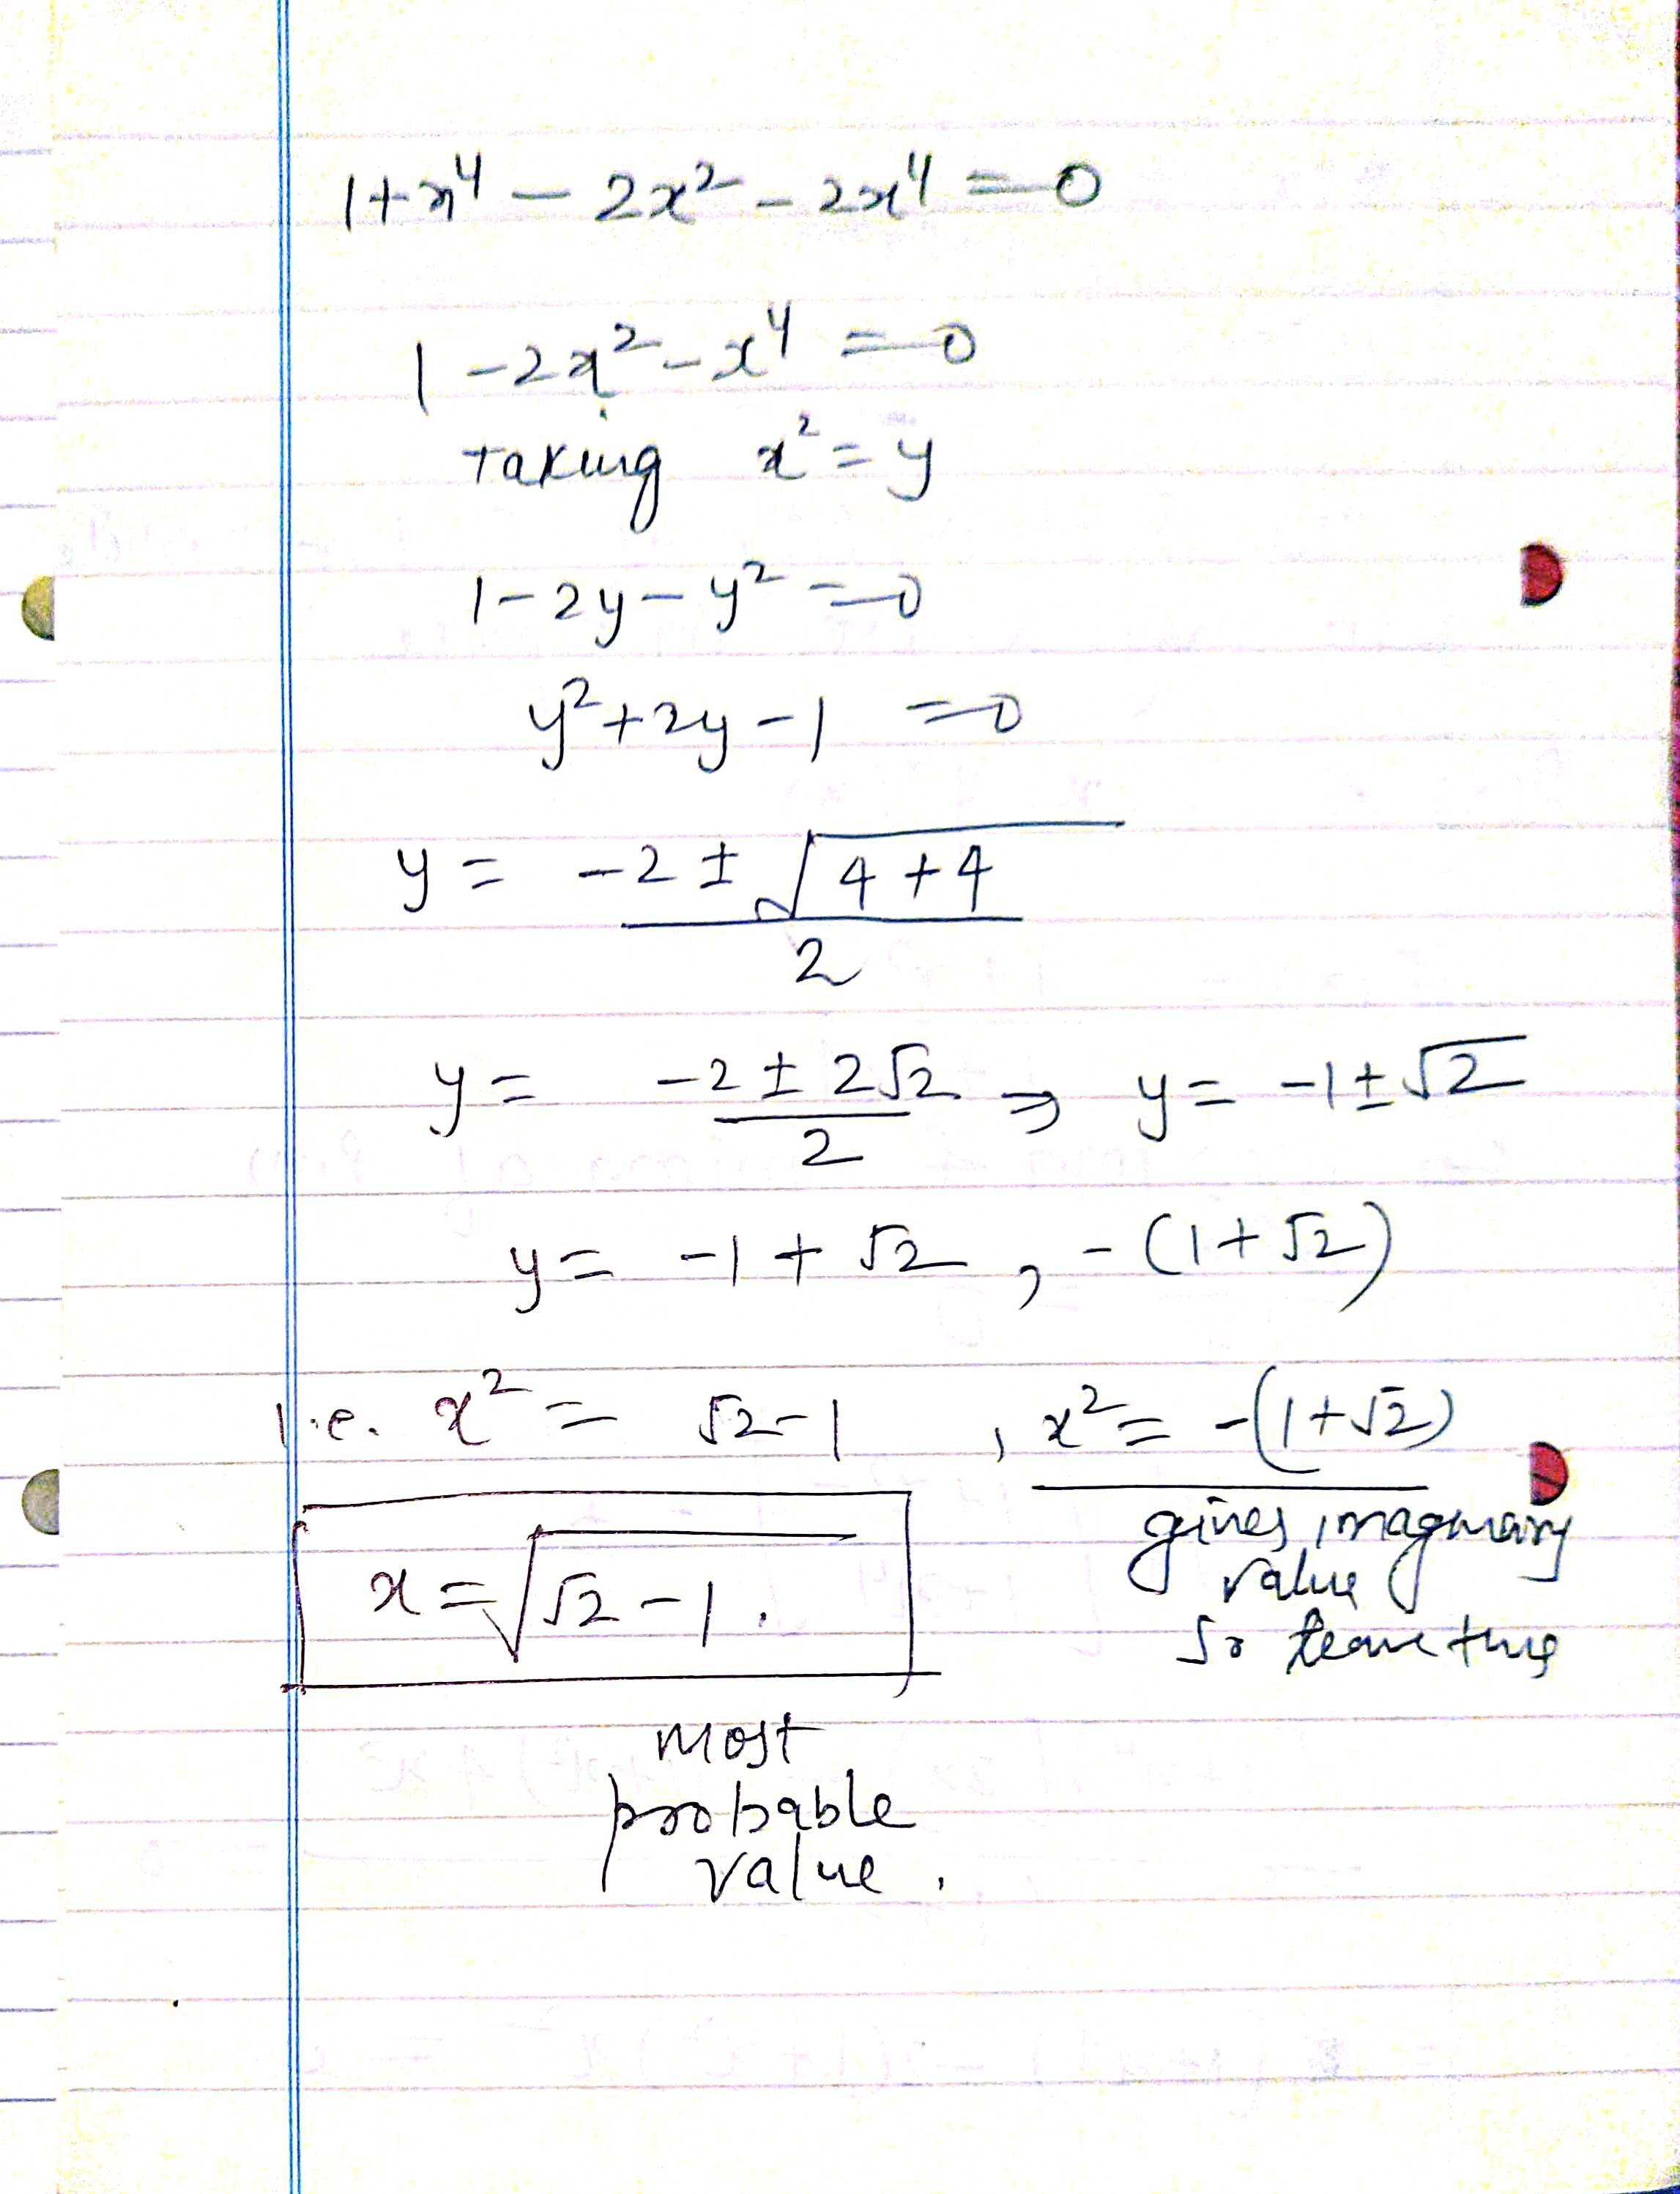 1+x⁴ − 2x² − 2x⁴ = 0
1 − 2x² − x⁴ = 0
Taking x² = y
1 − 2y − y² = 0
y² + 2y − 1 = 0
y = (−2 ± √(4+4))/2
y = (−2 ± 2√2)/2 ⇒ y = −1 ± √2
y = −1 + √2 , −(1+√2)
i.e. x² = √2−1 , x² = −(1+√2)
gives imaginary
value
So leave this
x = √(√2−1).
most
probable
value.